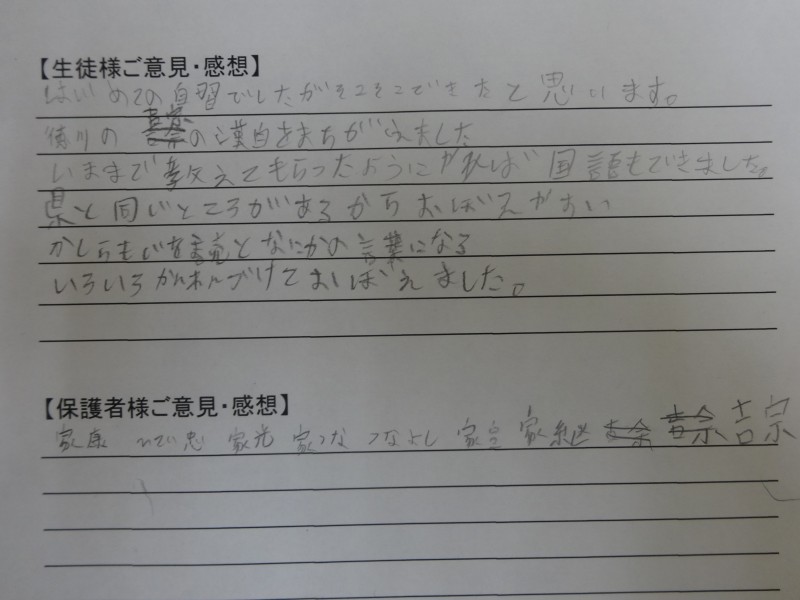 【生徒様ご意見・感想】
はじめての自習でしたがそこそこできたと思います。
徳川の の漢字をまちがえました
いままで教えてもらったようにやれば国語もできました。
県と同じところがあるからおぼえやすい
かしらもじを読むとなにかの言葉になる
いろいろ づけておぼえました。
【保護者様ご意見・感想】
家康 ひで忠 家光 家つな つなよし 家宣 家継 吉宗